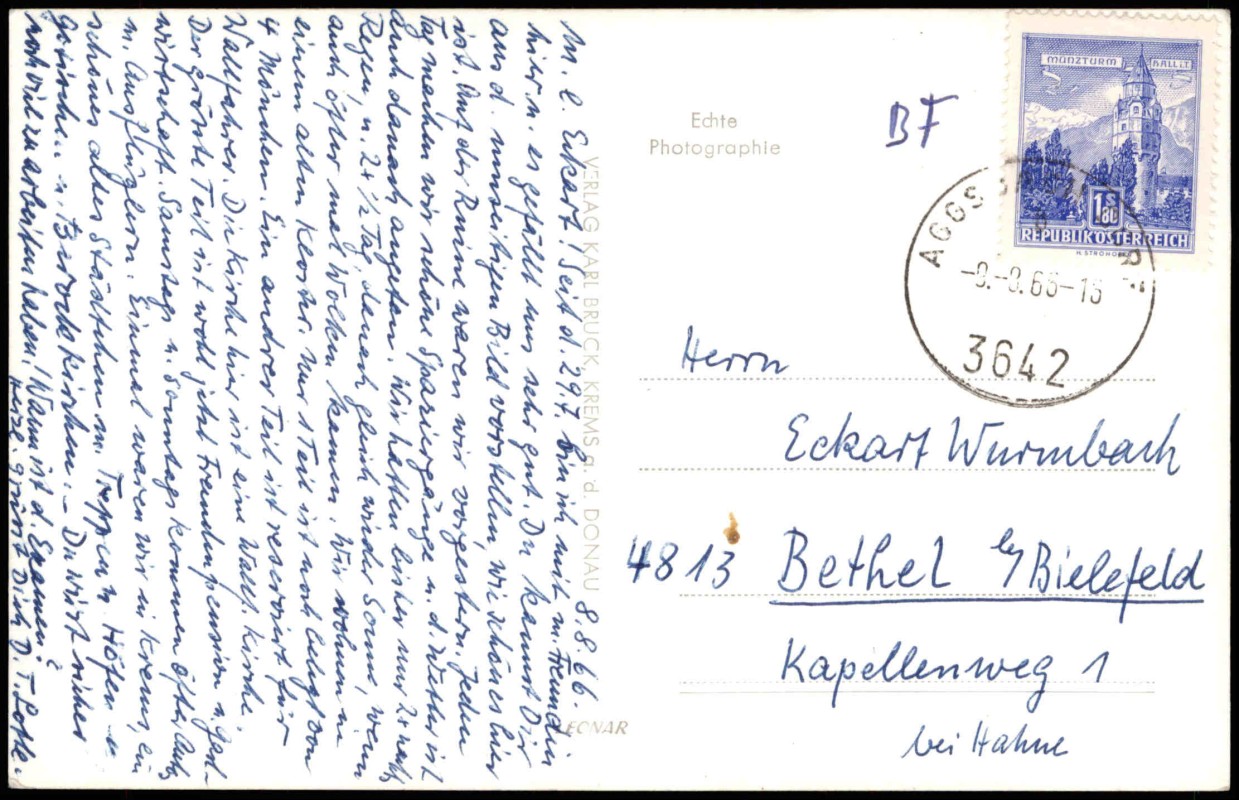 8.8.66.
M. l. Eckart! Seit d. 29.7. bin ich mit m. Freundin
hier u. es gefällt uns sehr gut. Du kannst Dir
aus d. umseitigen Bild vorstellen, wie schön es hier
ist. Auf der Ruine waren wir vorgestern. Jeden
Tag machen wir schöne Spaziergänge u. d. Wetter ist
auch danach angetan. Wir hatten bisher nur 2x nachts
Regen, u. 2x ½ Tag, danach gleich wieder Sonne, wenn
auch öfter mal Wolken kamen. Wir wohnen in
einem alten Kloster. Nur 1 Teil ist noch belegt von
4 Mönchen. Ein andrer Teil ist reserviert für
Wallfahrer. Die Kirche hier ist eine Wallf. Kirche.
Der grösste Teil ist wohl jetzt Fremdenpension u. Gast-
wirtschaft. Samstags u. Sonntags kommen öfter Autos
m. Ausflüglern. Einmal waren wir in Krems, ein
schönes altes Städtchen m. Treppen u. Höfen u.
gotischen u. Barockkirchen. – Du wirst sicher
noch viel zu arbeiten haben! Wann ist d. Examen?
Herzl. grüsst Dich D. T. Lotte.
VERLAG KARL BRUCK, KREMS a. d. DONAU
Echte
Photographie
LEONAR
BF
MÜNZTURM HALL I.T.
1.80 S
REPUBLIK ÖSTERREICH
H. STROHOFER
AGGS
-9.-8.66-16
3642
Herrn
Eckart Wurmbach
4813 Bethel b/Bielefeld
Kapellenweg 1
bei Hahne